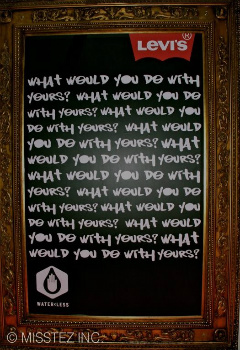 LEVI'S®
WHAT WOULD YOU DO WITH
YOURS? WHAT WOULD YOU DO
WITH YOURS? WHAT WOULD YOU
DO WITH YOURS? WHAT WOULD
YOU DO WITH YOURS? WHAT
WOULD YOU DO WITH YOURS?
WHAT WOULD YOU DO WITH
YOURS? WHAT WOULD YOU DO
WITH YOURS? WHAT WOULD YOU
DO WITH YOURS? WHAT WOULD
YOU DO WITH YOURS? WHAT
WOULD YOU DO WITH YOURS?
WATER<LESS
© MISSTEZ INC.